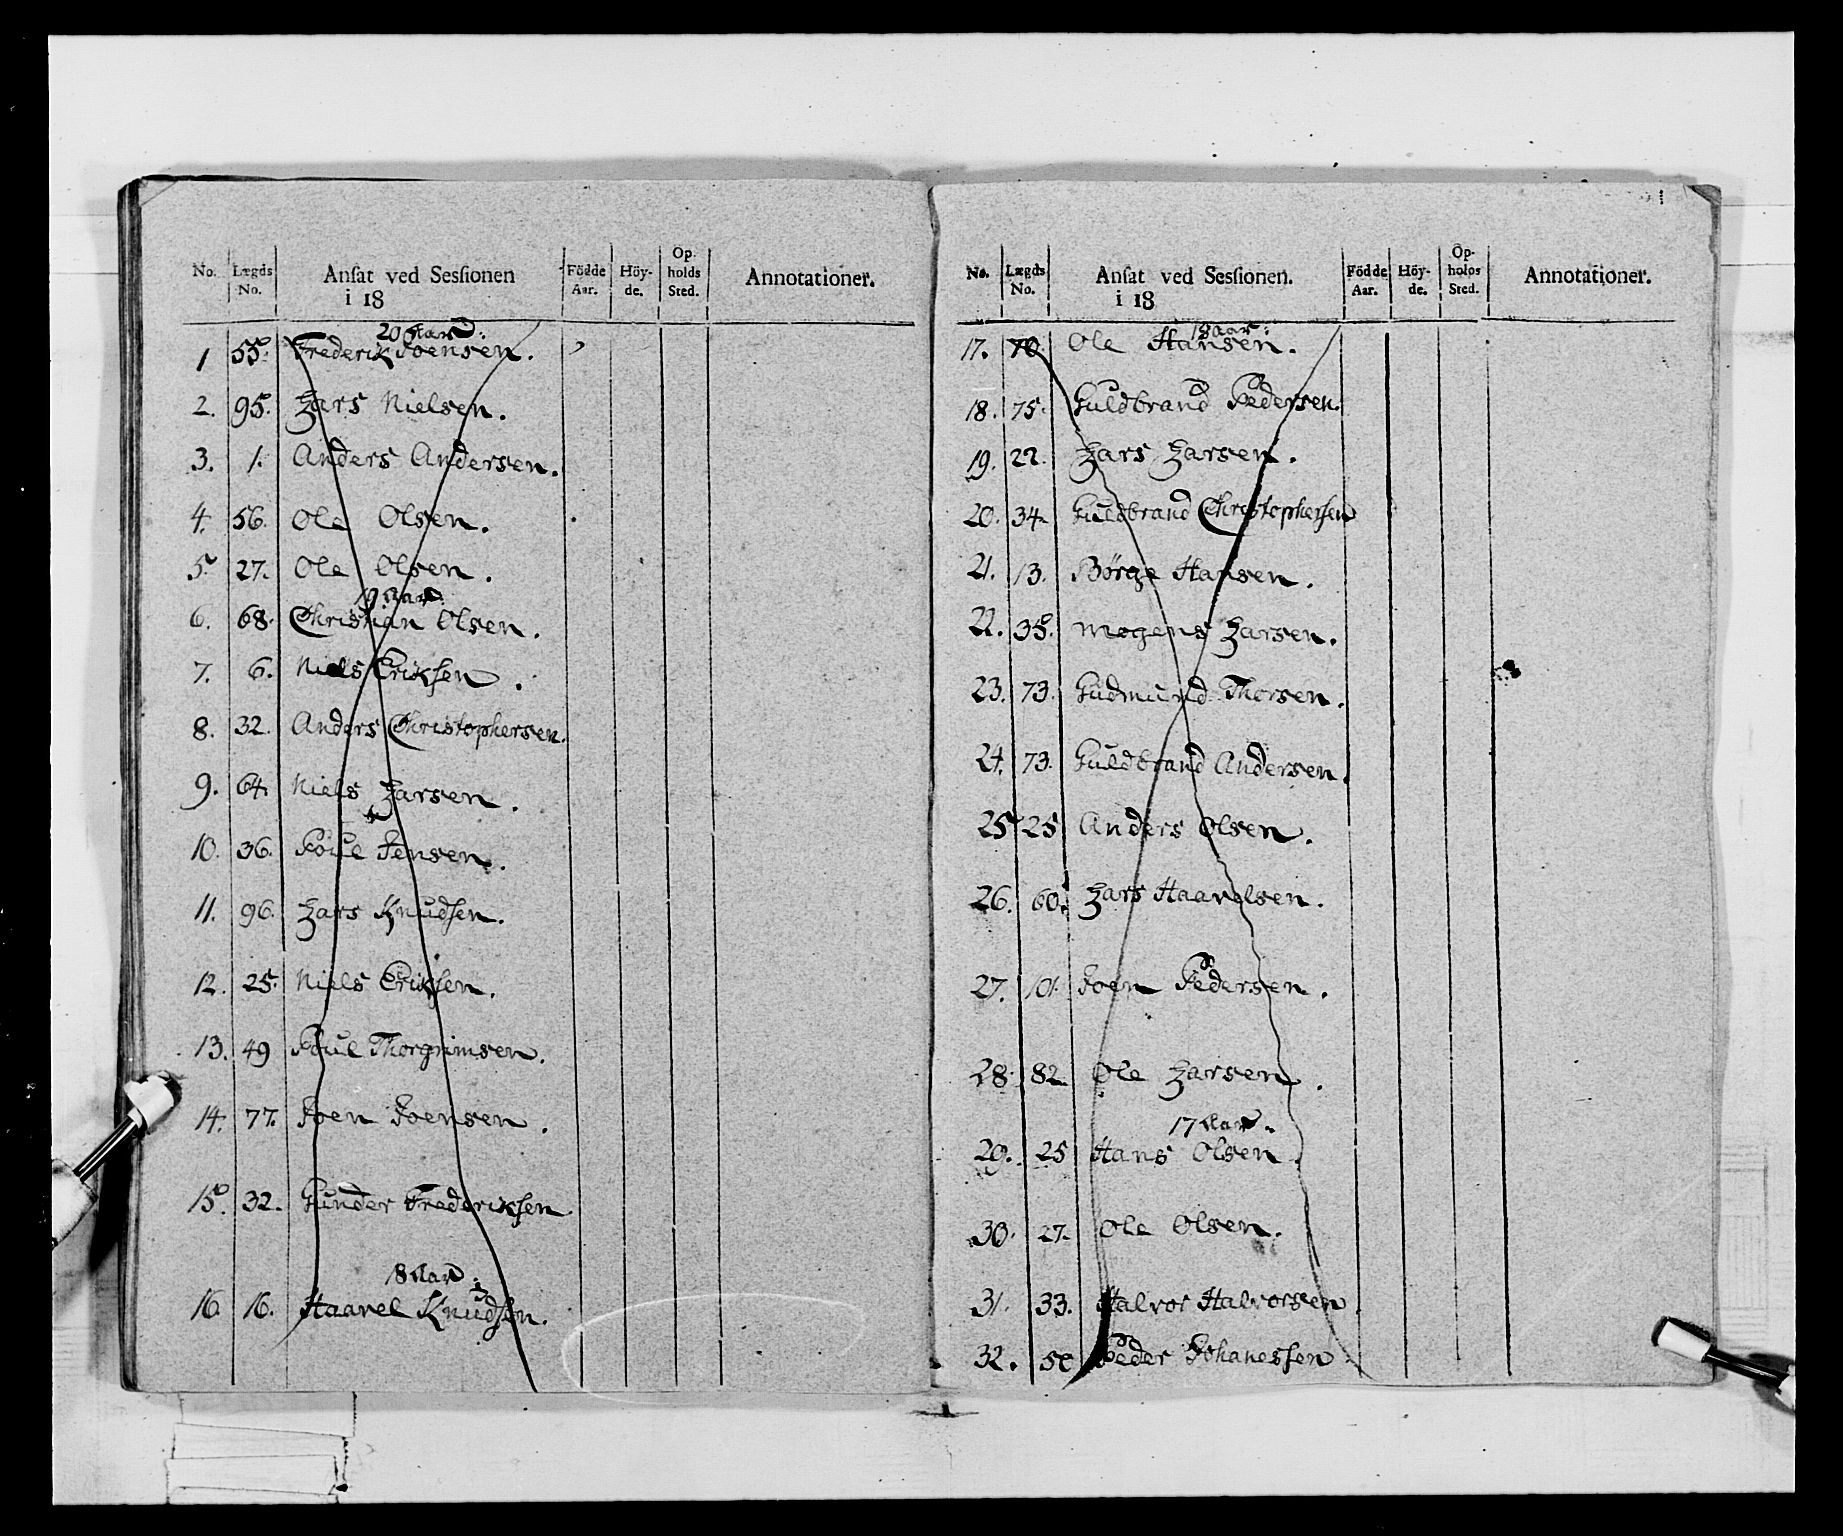 No. Lægds No. Ansat ved Sessionen i 18 Födde Aar. Höyde. Opholds Sted. Annotationer.
20 Aar:
1 55. Frederik Joensen.
2. 95. Lars Nielsen.
3. 1. Anders Andersen.
4. 56. Ole Olsen.
5. 27. Ole Olsen.
19 Aar:
6. 68. Christian Olsen.
7. 6. Niels Eriksen.
8. 32. Anders Christophersen.
9. 64. Niels Larsen.
10. 36. Poul Jensen.
11. 96. Lars Knudsen.
12. 25. Niels Eriksen.
13. 49 Poul Thorgrimsen.
14. 77. Joen Joensen.
15. 32. Gunder Frederiksen
18 Aar:
16. 16. Haavel Knudsen.
No. Lægds No. Ansat ved Sessionen. i 18 Födde Aar. Höyde. Opholds Sted. Annotationer.
18 aar:
17. 70. Ole Hansen.
18. 75. Guldbrand Pedersen.
19. 22. Lars Larsen.
20. 34. Guldbrand Christophersen
21. 13. Börge Hansen.
22. 35. Mogens Larsen.
23. 73. Gudmund Thorsen.
24. 73. Guldbrand Andersen.
25. 25 Anders Olsen.
26. 60. Lars Haavelsen.
27. 101. Joen Pedersen.
28. 82. Ole Larsen.
17 Aar.
29. 25 Hans Olsen.
30. 27. Ole Olsen.
31. 33. Halvor Halvorsen
32. Peder Johanessen